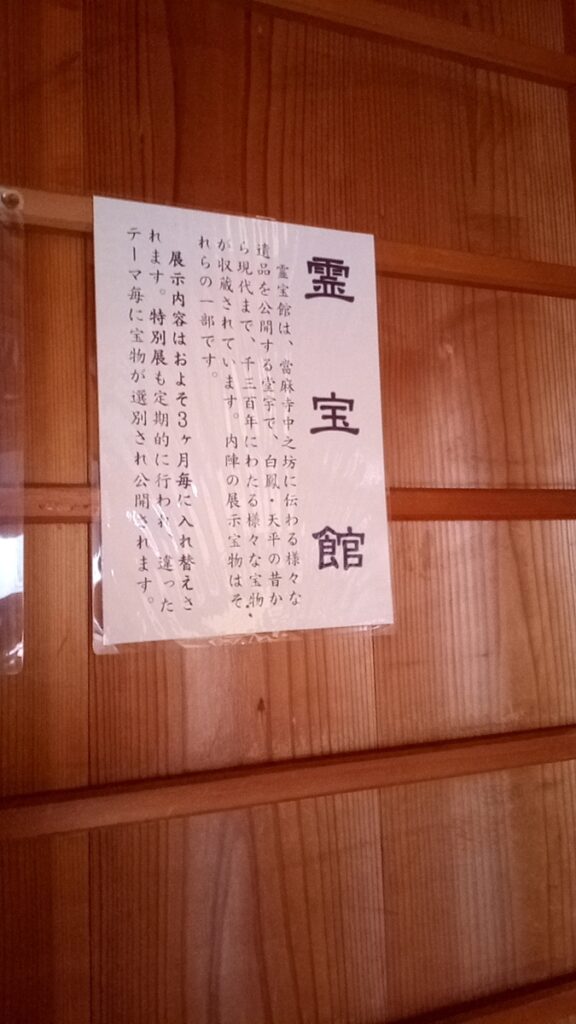 霊宝館
霊宝館は、當麻寺中之坊に伝わる様々な
遺品を公開する堂宇で、白鳳・天平の昔か
ら現代まで、千三百年にわたる様々な宝物
が収蔵されています。内陣の展示宝物はそ
れらの一部です。
展示内容はおよそ3ヶ月毎に入れ替えさ
れます。特別展も定期的に行われ、違った
テーマ毎に宝物が選別され公開されます。